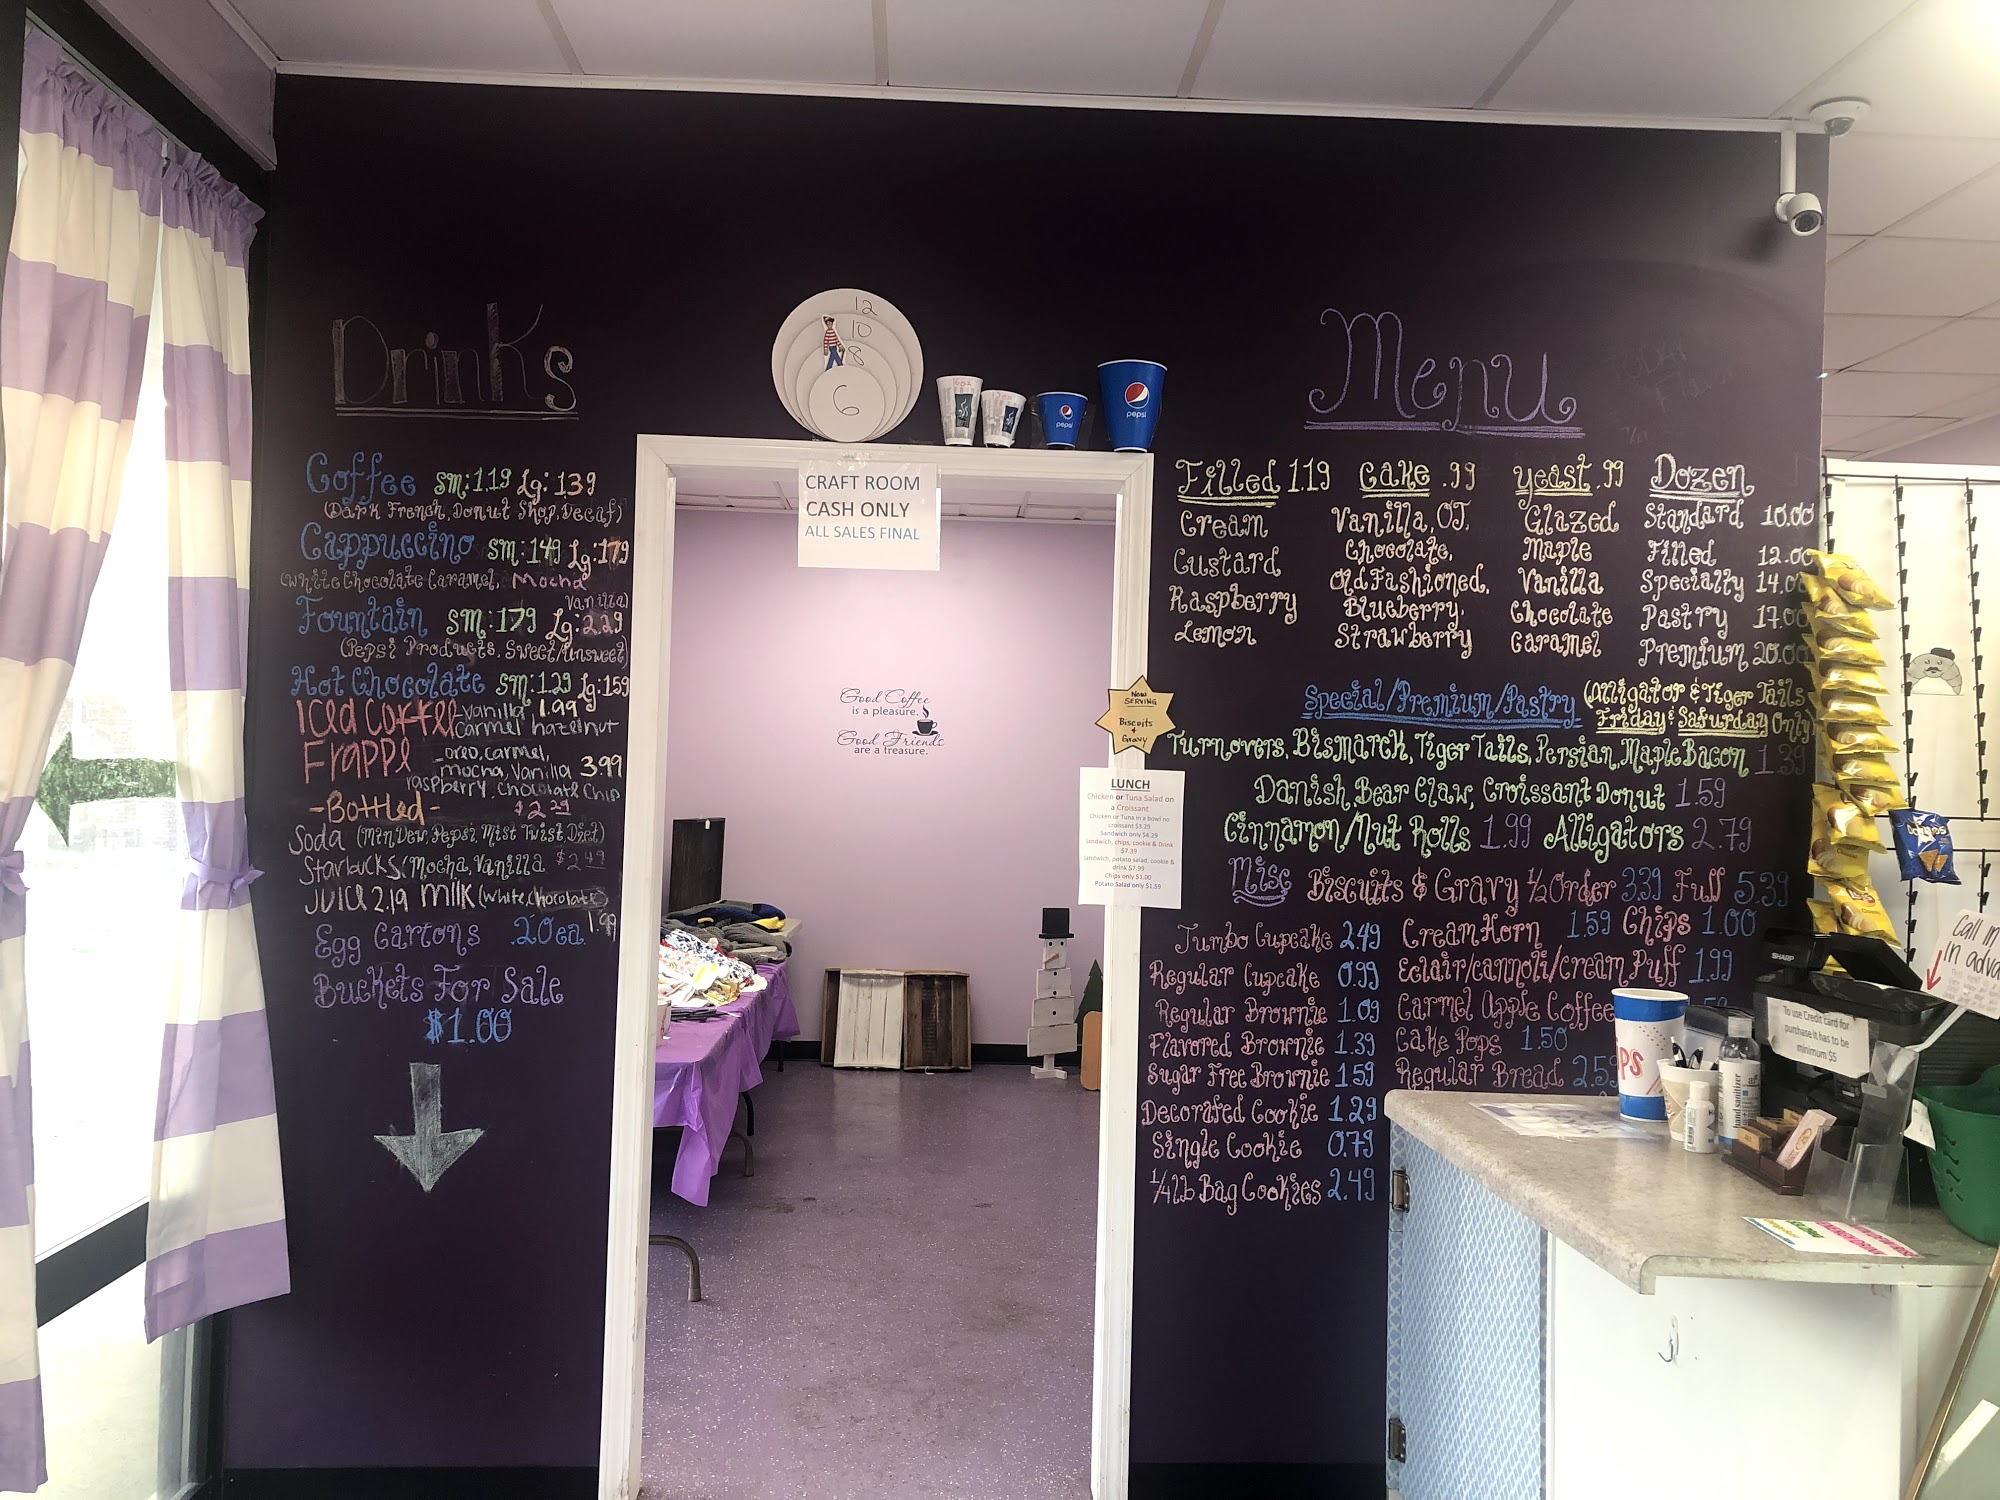 Drinks
Coffee sm:1.19 Lg: 1.39
(Dark French, Donut Shop, Decaf)
Cappuccino sm:1.49 Lg:1.79
(White Chocolate Caramel, Mocha
Vanilla)
Fountain sm:1.79 Lg:2.29
(Pepsi Products, Sweet/Unsweet)
Hot Chocolate sm:1.29 Lg:1.59
Iced Coffee - Vanilla 1.99
Carmel hazelnut
Frappe - oreo, carmel,
mocha, Vanilla 3.99
raspberry, chocolate chip
- Bottled - $2.29
Soda (Mtn Dew, Pepsi, Mist Twist, Diet)
Starbucks (Mocha, Vanilla $2.49
Juice 2.19 milk (white, chocolate)
1.99
Egg Cartons .20 ea.
Buckets For Sale
$1.00
12
10
8
6
16oz
12oz
pepsi
pepsi
CRAFT ROOM
CASH ONLY
ALL SALES FINAL
Good Coffee
is a pleasure.
Good Friends
are a treasure.
Now
SERVING
Biscuits
&
Gravy
LUNCH
Chicken or Tuna Salad on
a Croissant
Chicken or Tuna in a bowl no
croissant $3.29
Sandwich only $4.29
Sandwich, chips, cookie & Drink
$7.39
Sandwich, potato salad, cookie &
drink $7.99
Chips only $1.00
Potato Salad only $1.59
Menu
Filled 1.19 Cake .99 Yeast .99 Dozen
Cream Vanilla, OJ. Glazed Standard 10.00
Custard Chocolate, Maple Filled 12.00
Raspberry Old Fashioned, Vanilla Specialty 14.00
Lemon Blueberry, Chocolate Pastry 17.00
Strawberry Caramel Premium 20.00
Special/Premium/Pastry (Alligator & Tiger Tails
Friday & Saturday Only)
Turnovers, Bismarck, Tiger Tails, Persian, Maple Bacon 1.39
Danish, Bear Claw, Croissant Donut 1.59
Cinnamon/Nut Rolls 1.99 Alligators 2.79
Misc Biscuits & Gravy ½ Order 3.39 Full 5.39
Jumbo Cupcake 2.49 Cream Horn 1.59 Chips 1.00
Regular Cupcake 0.99 Eclair/Cannoli/Cream Puff 1.99
Regular Brownie 1.09 Carmel Apple Coffee
Flavored Brownie 1.39 Cake Pops 1.50
Sugar Free Brownie 1.59 Regular Bread 2.59
Decorated Cookie 1.29
Single Cookie 0.79
1/4 lb Bag Cookies 2.49
SHARP
To use Credit card for
purchase it has to be
minimum $5
Call in
in adva
Doritos
Lay's
hand sanitizer